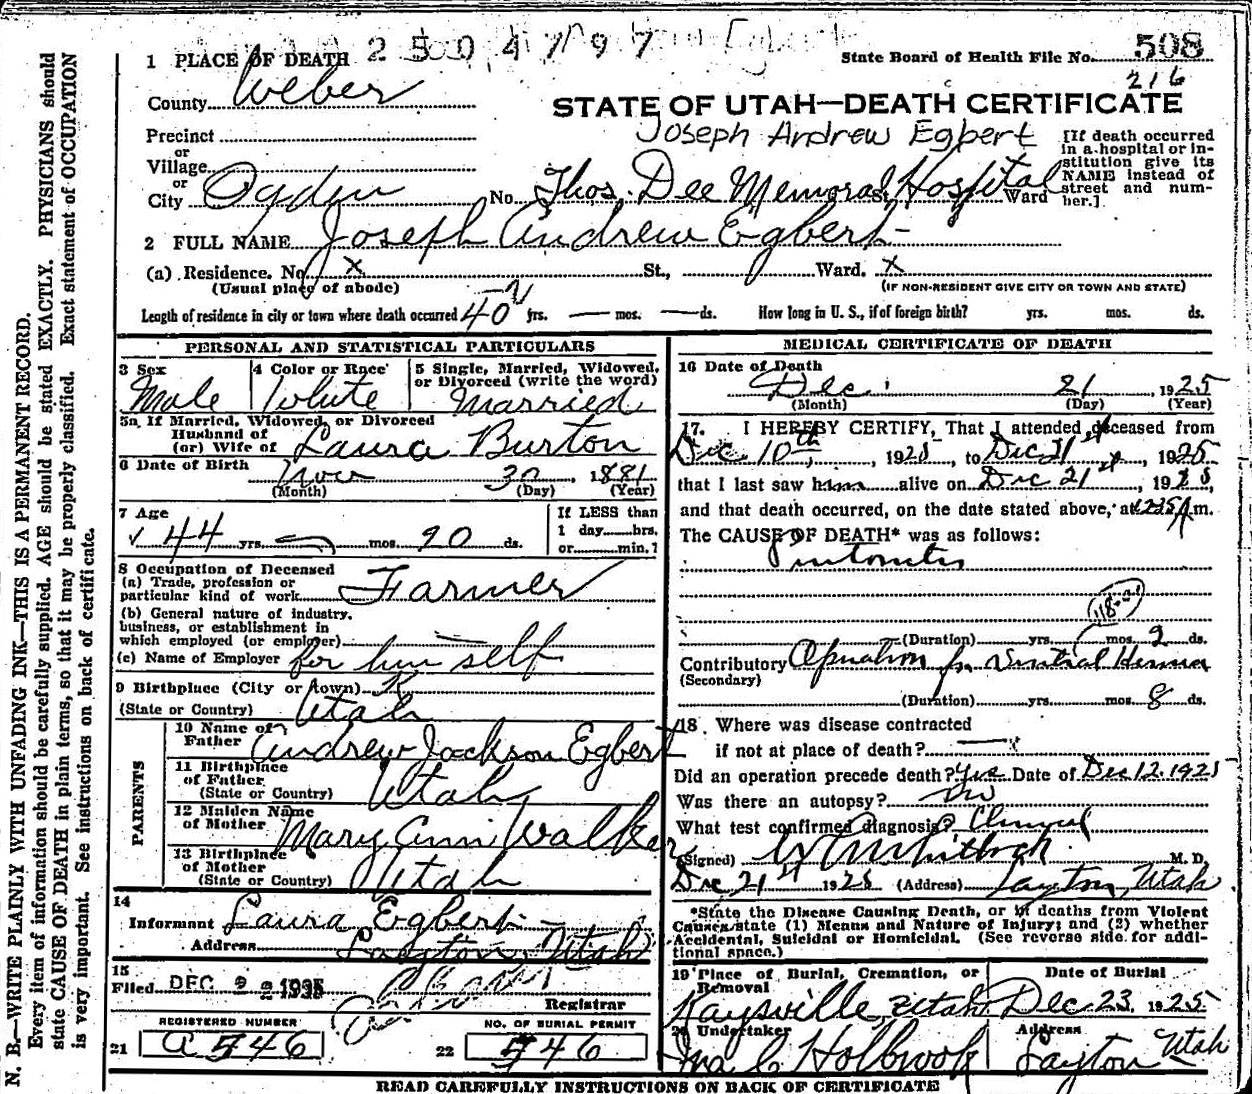 N. B.—WRITE PLAINLY WITH UNFADING INK—THIS IS A PERMANENT RECORD.
Every item of information should be carefully supplied. AGE should be stated EXACTLY. PHYSICIANS should
state CAUSE OF DEATH in plain terms, so that it may be properly classified. Exact statement of OCCUPATION
is very important. See instructions on back of certificate.
1 PLACE OF DEATH 2504797
State Board of Health File No. 508
216
County Weber
STATE OF UTAH—DEATH CERTIFICATE
Joseph Andrew Egbert
Precinct
or
Village
or
City Ogden No. Thos. Dee Memorial Hospital St., Ward
[If death occurred
in a hospital or in-
stitution give its
NAME instead of
street and num-
ber.]
2 FULL NAME Joseph Andrew Egbert
(a) Residence. No. x St., Ward. x
(Usual place of abode) (IF NON-RESIDENT GIVE CITY OR TOWN AND STATE)
Length of residence in city or town where death occurred 40 yrs. — mos. — ds. How long in U. S., if of foreign birth? yrs. mos. ds.
PERSONAL AND STATISTICAL PARTICULARS
3 Sex Male
4 Color or Race White
5 Single, Married, Widowed,
or Divorced (write the word)
Married
5a If Married, Widowed, or Divorced
Husband of
(or) Wife of Laura Burton
6 Date of Birth Nov 30, 1881
(Month) (Day) (Year)
7 Age
44 yrs. — mos. 20 ds.
If LESS than
1 day......hrs.
or......min.?
8 Occupation of Deceased
(a) Trade, profession or
particular kind of work Farmer
(b) General nature of industry,
business, or establishment in
which employed (or employer)
(c) Name of Employer for him self
9 Birthplace (City or town) x
(State or Country) Utah
PARENTS
10 Name of
Father Andrew Jackson Egbert
11 Birthplace
of Father
(State or Country) Utah
12 Maiden Name
of Mother Mary Ann Walker
13 Birthplace
of Mother
(State or Country) Utah
14
Informant Laura Egbert
Address Layton, Utah
15
Filed DEC 22 1925
Registrar
REGISTERED NUMBER
21 a546
NO. OF BURIAL PERMIT
22 546
MEDICAL CERTIFICATE OF DEATH
16 Date of Death
Dec. 21 1925
(Month) (Day) (Year)
17. I HEREBY CERTIFY, That I attended deceased from
Dec 10th, 1925, to Dec 21st, 1925
that I last saw him alive on Dec 21st, 1925,
and that death occurred, on the date stated above, at 1225 A m.
The CAUSE OF DEATH* was as follows:
Peritonitis
(Duration) yrs. mos. 9 ds.
Contributory Operation for Ventral Hernia
(Secondary)
(Duration) yrs. mos. 8 ds.
18. Where was disease contracted
if not at place of death? —
Did an operation precede death? Yes Date of Dec 12.1925
Was there an autopsy? no
What test confirmed diagnosis? Clinical
(Signed) Whitlock M. D.
Dec 21st 1925 (Address) Layton, Utah
*State the Disease Causing Death, or in deaths from Violent
Causes, state (1) Means and Nature of Injury; and (2) whether
Accidental, Suicidal or Homicidal. (See reverse side for addi-
tional space.)
19 Place of Burial, Cremation, or
Removal
Kaysville, Utah
Date of Burial
Dec 23, 1925
20 Undertaker
Ira C Holbrook
Address
Layton Utah
READ CAREFULLY INSTRUCTIONS ON BACK OF CERTIFICATE